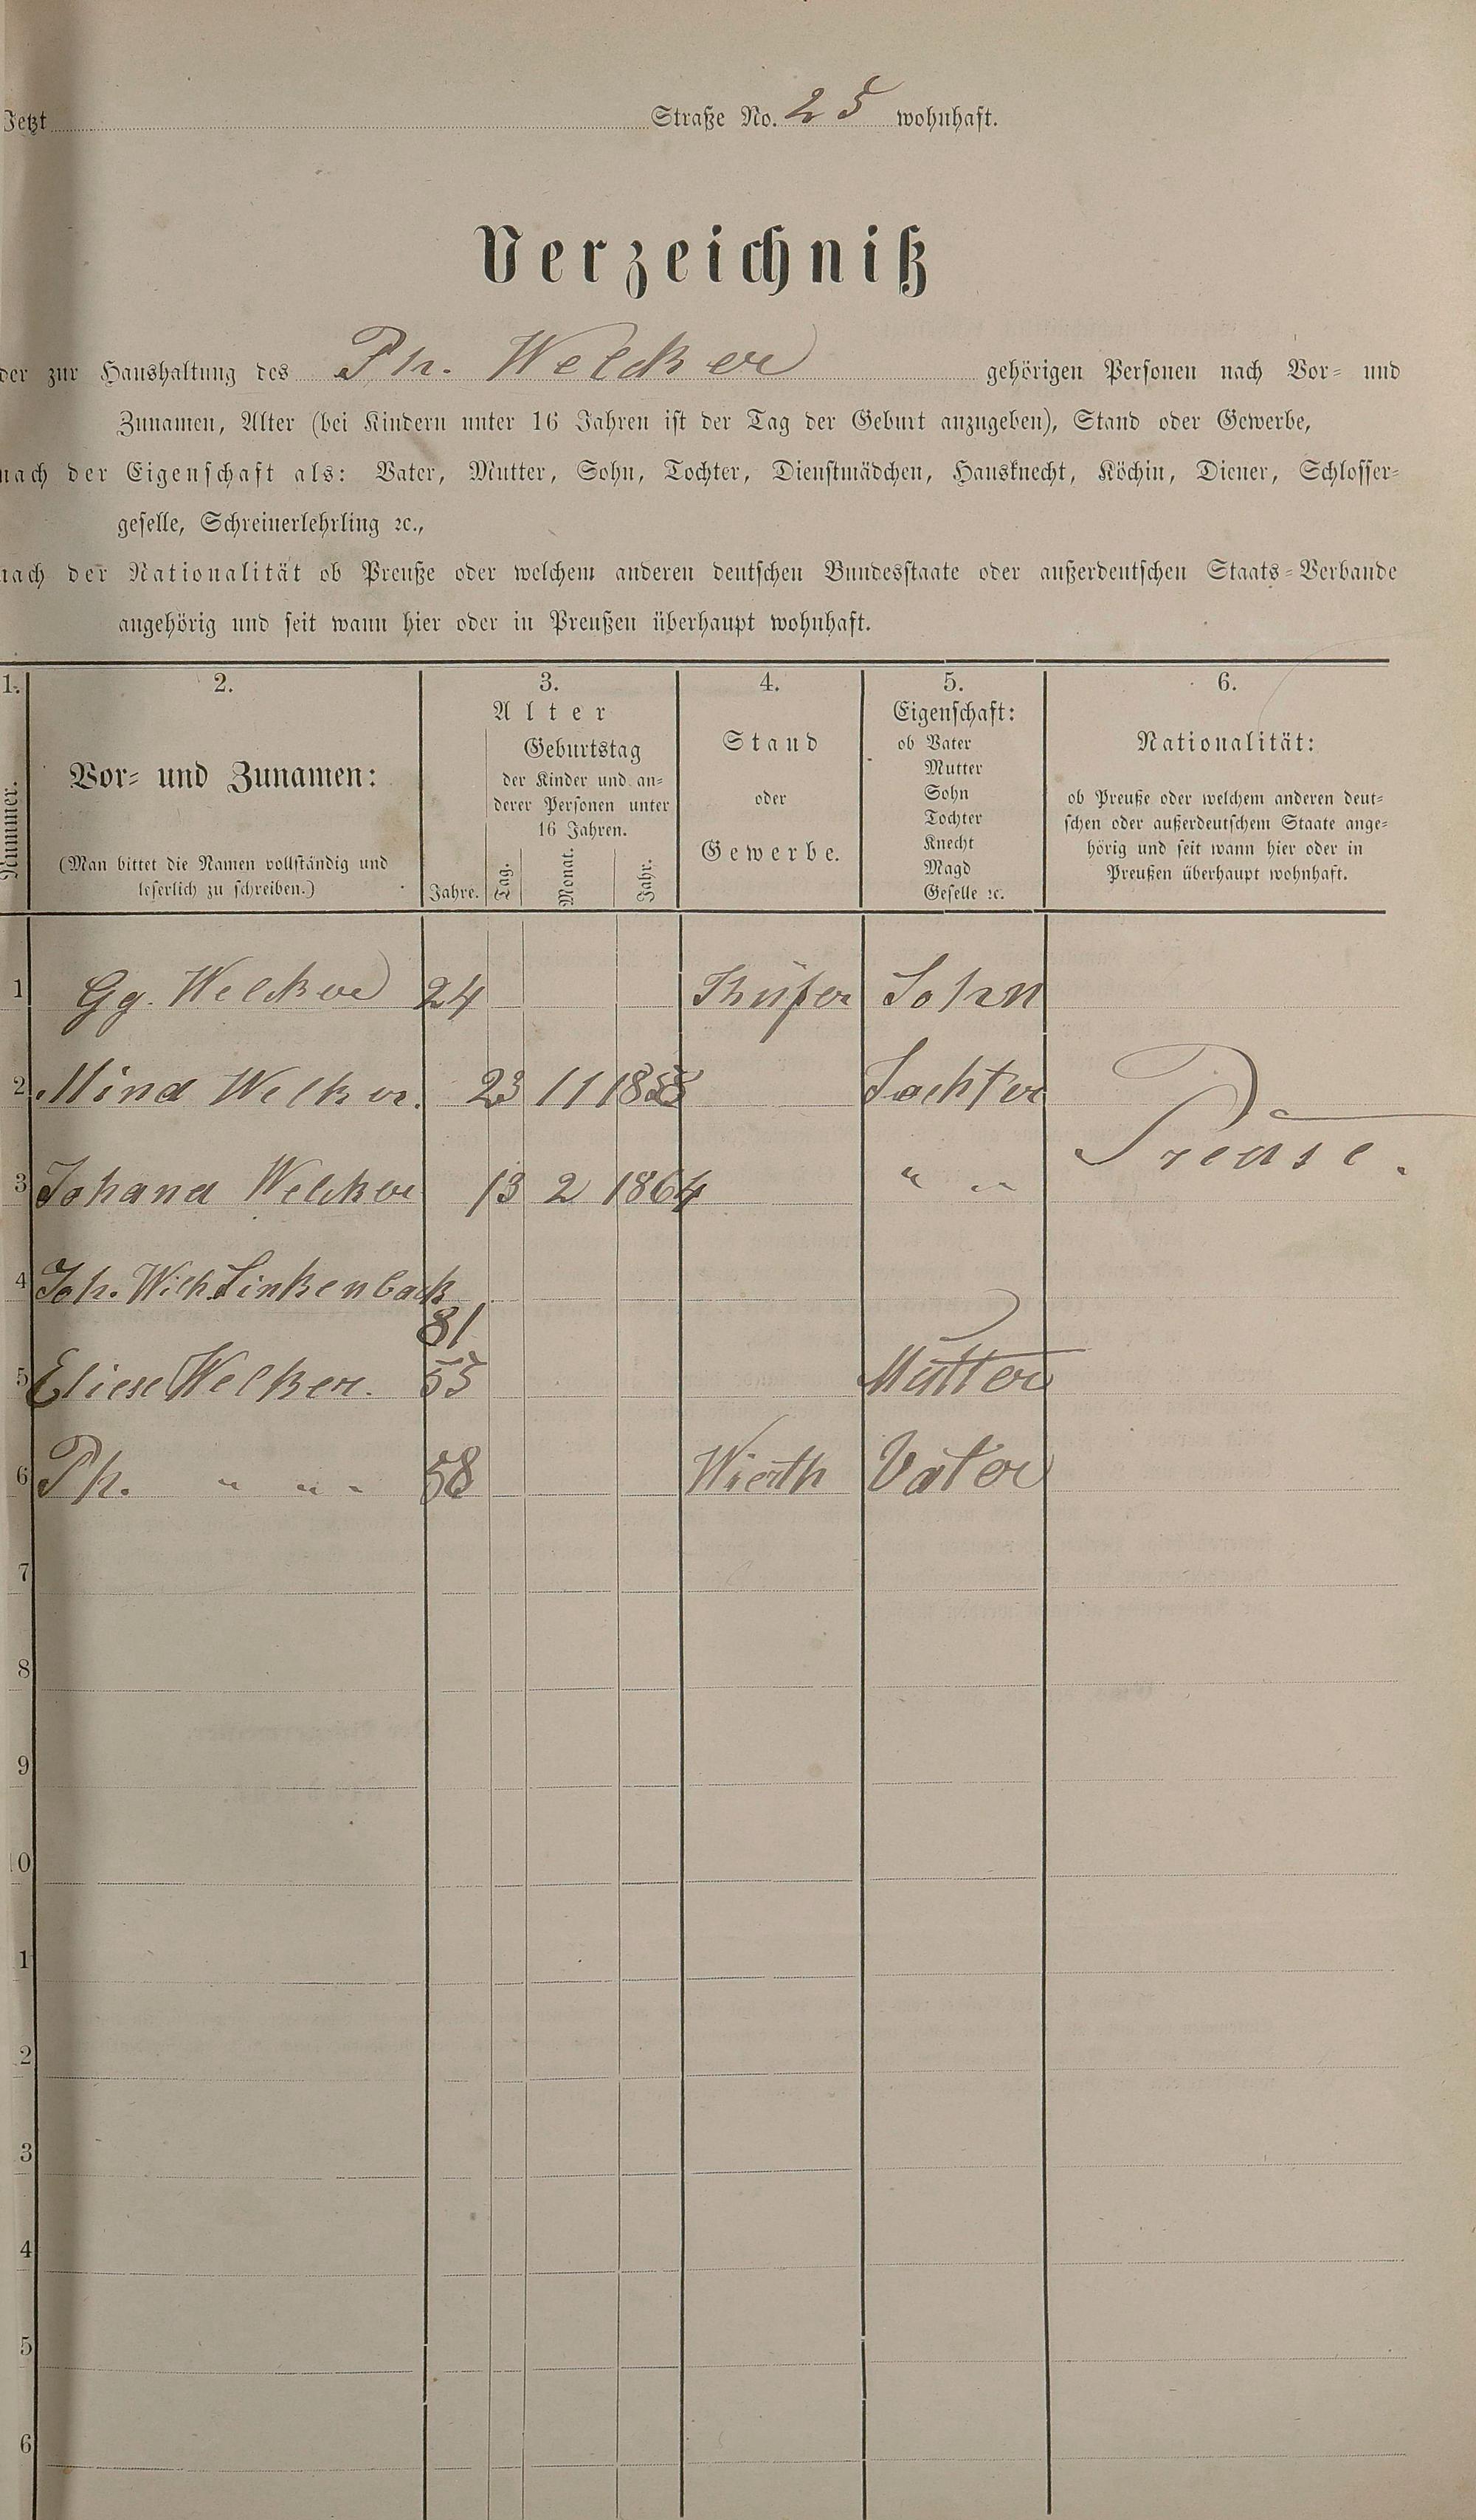 Jetzt Straße No. 25 wohnhaft.
Verzeichniß
der zur Haushaltung des Ph. Welcker gehörigen Personen nach Vor- und
Zunamen, Alter (bei Kindern unter 16 Jahren ist der Tag der Geburt anzugeben), Stand oder Gewerbe,
nach der Eigenschaft als: Vater, Mutter, Sohn, Tochter, Dienstmädchen, Hausknecht, Köchin, Diener, Schlosser-
geselle, Schreinerlehrling ꝛc.,
nach der Nationalität ob Preuße oder welchem anderen deutschen Bundesstaate oder außerdeutschen Staats-Verbande
angehörig und seit wann hier oder in Preußen überhaupt wohnhaft.
1.
Nummer.
2.
Vor- und Zunamen:
(Man bittet die Namen vollständig und
leserlich zu schreiben.)
3.
Alter
Geburtstag
der Kinder und an-
derer Personen unter
16 Jahren.
Jahre. Tag. Monat. Jahr.
4.
Stand
oder
Gewerbe.
5.
Eigenschaft:
ob Vater
Mutter
Sohn
Tochter
Knecht
Magd
Geselle ꝛc.
6.
Nationalität:
ob Preuße oder welchem anderen deut-
schen oder außerdeutschem Staate ange-
hörig und seit wann hier oder in
Preußen überhaupt wohnhaft.
1 Gg. Welcker 24 Küfer Sohn
2 Mina Welker. 23 11 1858 Tochter
Preuse.
3 Johana Welcker 13 2 1864 " "
4 Joh. Wilh. Linkenback
81
5 Eliese Welker. 55 Mutter
6 Ph. " " " 58 Wierth Vater
7
8
9
10
1
2
3
4
5
6